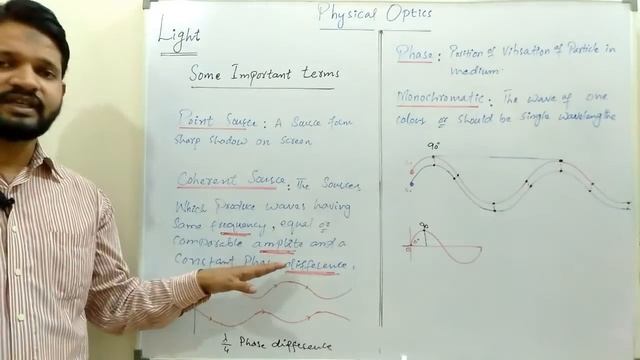 Physical Optics
Light
Some Important terms
Point Source : A Source form
sharp shadow on screen
Coherent Source : The Sources
Which produce waves having
Same frequency, equal or
Composable amplite and a
Constant Phase difference.
λ/4 Phase difference
Phase : Position of Vibsation of Particle in
medium.
Monochromatic : The wave of one
colours or should be single wavelengthe
90°
90